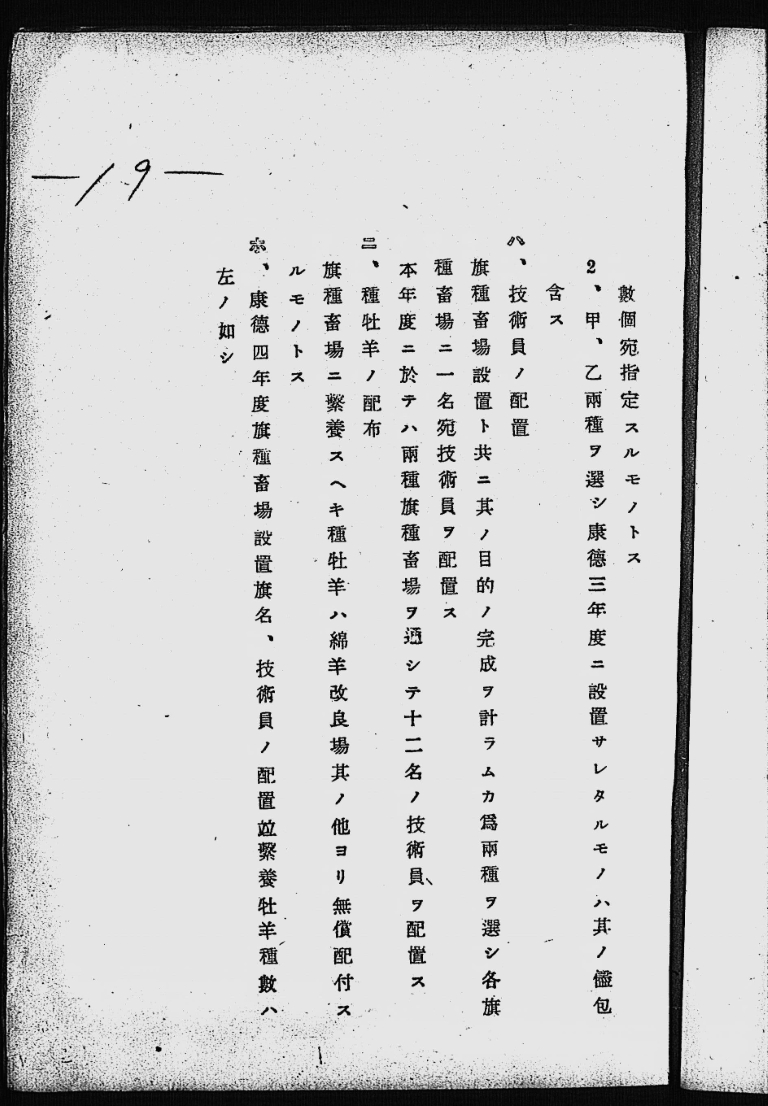 —19—
數個宛指定スルモノトス
2、甲、乙兩種ヲ選シ康德三年度ニ設置サレタルモノハ其ノ儘包
含ス
ハ、技術員ノ配置
旗種畜場設置ト共ニ其ノ目的ノ完成ヲ計ラムカ爲兩種ヲ選シ各旗
種畜場ニ一名宛技術員ヲ配置ス
本年度ニ於テハ兩種旗種畜場ヲ通シテ十二名ノ技術員ヲ配置ス
ニ、種牡羊ノ配布
旗種畜場ニ繫養スヘキ種牡羊ハ綿羊改良場其ノ他ヨリ無償配付ス
ルモノトス
ホ、康德四年度旗種畜場設置旗名、技術員ノ配置竝繫養牡羊種數ハ
左ノ如シ